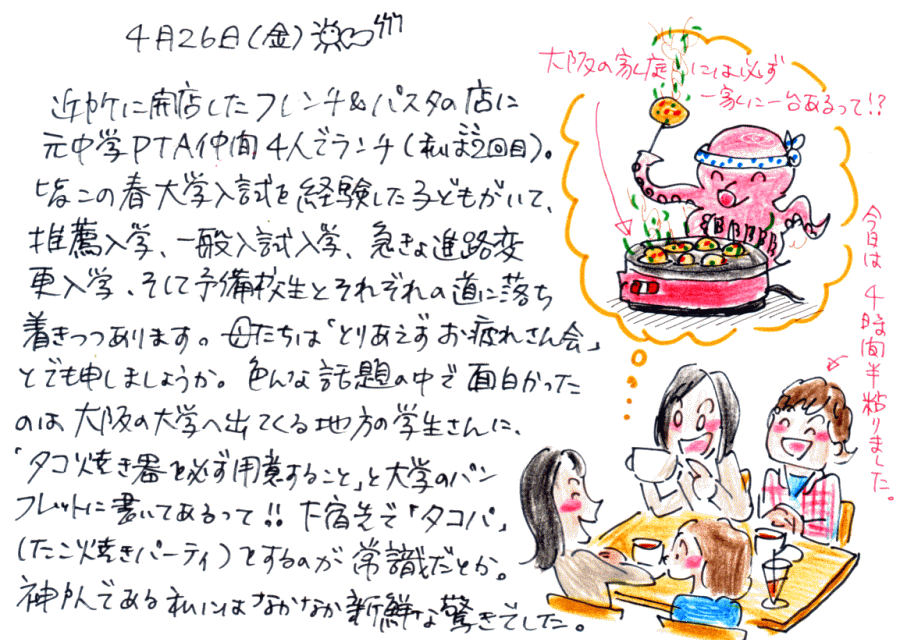 4月26日(金)
近カケに開店したフレンチ&パスタの店に
元中学PTA仲間4人でランチ(私は2回目)。
皆この春大学入試を経験した子どもがいて、
推薦入学、一般入試入学、急きょ進路変
更入学、そして予備校生とそれぞれの道に落ち
着きつつあります。母たちは「とりあえずお疲れさん会」
とでも申しましょうか。色んな話題の中で面白かった
のは大阪の大学へ出てくる地方の学生さんに、
「タコ焼き器を必ず用意すること」と大学のパン
フレットに書いてあるって!!下宿先で「タコパ」
(たこ焼きパーティ)とするのが常識だとか。
神戸人である私にはなかなか新鮮な驚きでした。
大阪の家庭には必ず
一家に一台あるって!?
今日は4時間半粘りました。